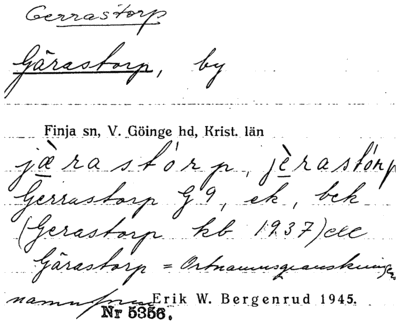 Gerrastorp
Gärastorp, by
Finja sn, V. Göinge hd, Krist. län
jæ̀rastórp, jèrastórp
Gerrastorp G9, ek, bek
(Gerastorp kb 1937) etc
Gärastorp = Ortnamnsgranskningens
Erik W. Bergenrud 1945.
Nr 5356.